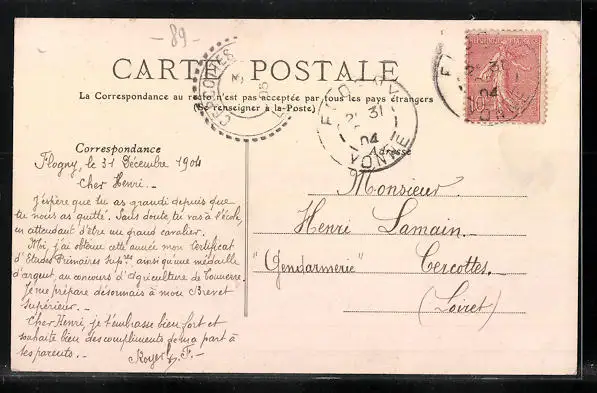 - 89 -
CARTE POSTALE
La Correspondance au recto n'est pas acceptée par tous les pays étrangers
(Se renseigner à la Poste)
CERCOTTES
FLOGNY
31
04
YONNE
Correspondance
Adresse
Flogny, le 31 Décembre 1904
Cher Henri. -
J'éspère que tu as grandi depuis que
tu nous as quitté. Sans doute tu vas à l'école,
en attendant d'être un grand cavalier.
Moi, j'ai obtenu cette année mon Certificat
d'Etudes Primaires Supres ainsi qu'une médaille
d'argent, au concours d'Agriculture de Tonnerre.
Je me prépare désormais à mon Brevet
Supérieur. -
Cher Henri, je t'embrasse bien fort et
souhaite bien des compliments de ma part à
tes parents. -
Royer F. -
Monsieur
Henri Lamain
"Gendarmerie" Cercottes.
(Loiret)